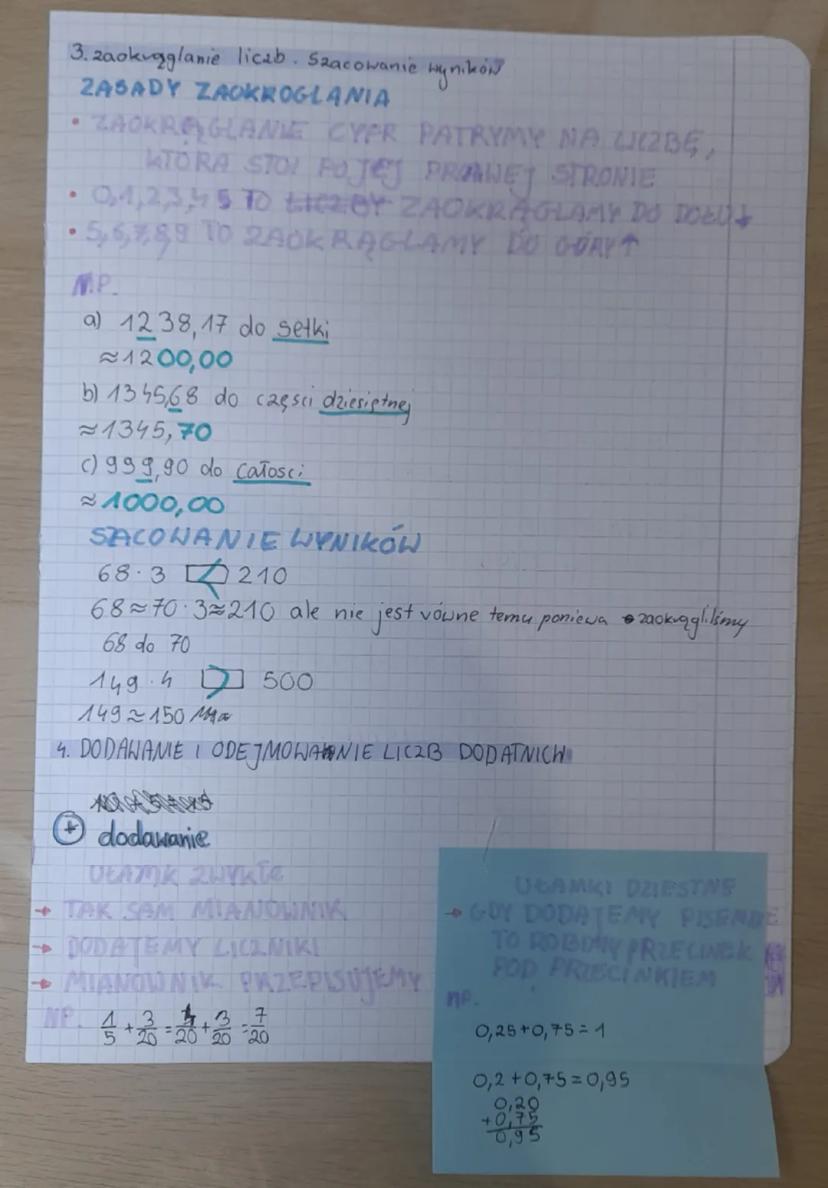 3. zaokrąglanie liczb. Szacowanie wyników
ZASADY ZAOKROGLANIA
• ZAOKRĄGLANIE CYFR PATRYMY NA LICZBĘ,
KTÓRA STOI POJEJ PRAWEJ STRONIE
• 0,1,2,3,4 5 TO LICZBY ZAOKRĄGLAMY DO DOŁU ↓
• 5,6,7,8,9 TO ZAOKRĄGLAMY DO GÓRY ↑
NP.
a) 1238,17 do setki
≈1200,00
b) 1345,68 do częsci dziesiętnej
≈1345,70
c) 999,90 do całosci
≈1000,00
SACOWANIE WYNIKÓW
68·3 < 210
68≈70·3≈210 ale nie jest równe temu poniewa zaokrągliliśmy
68 do 70
149·4 > 500
149≈150
4. DODAWANIE I ODEJMOWANIE LICZB DODATNICH
+ dodawanie
UŁAMK ZWYKŁE
→ TAK SAM MIANOWNIK
→ DODAJEMY LICZNIKI
→ MIANOWNIK PRZEPISUJEMY
NP. 1/5 + 3/20 = 4/20 + 3/20 = 7/20
UŁAMKI DZIESTNE
→ GDY DODAJEMY PISEMNIE
TO ROBIMY PRZECINEK
POD PRZECINKIEM
NP.
0,25+0,75=1
0,2+0,75=0,95
0,20
+0,75
0,95